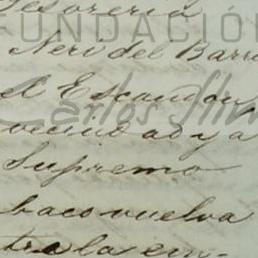 Tesoreria
FUNDACIÓN
Neri del Barri
A Escandon,
Carlos Slim
vecindad y a
Supremo
baco vuelva
tra la em-